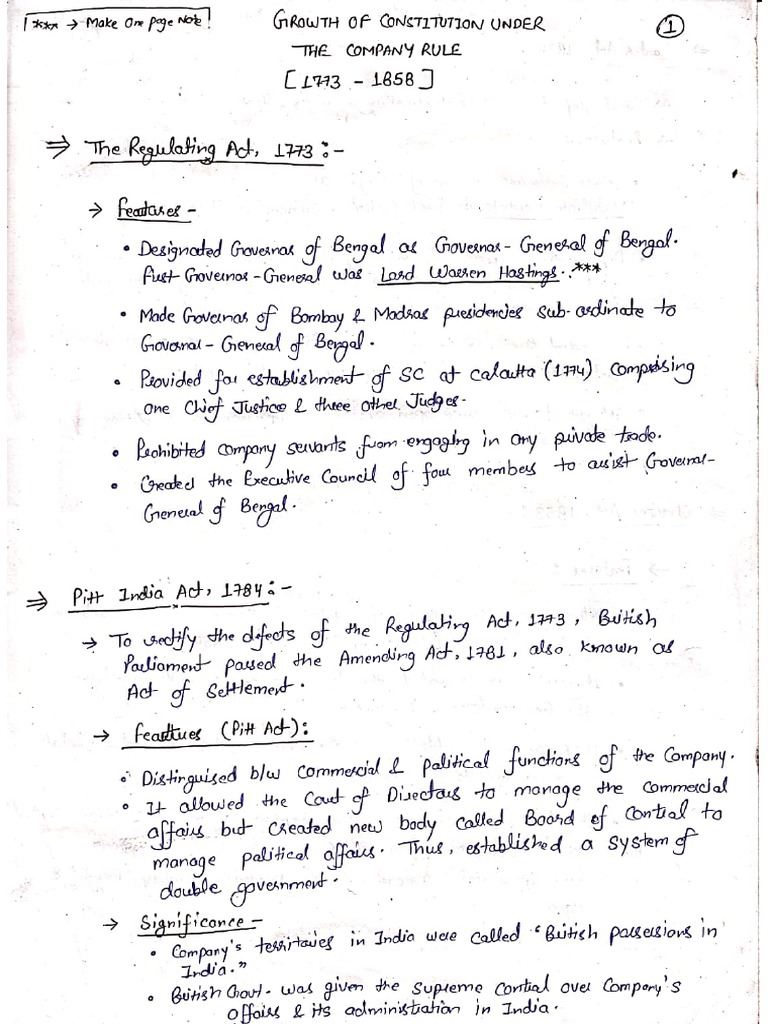 *** → Make One page Note!
GROWTH OF CONSTITUTION UNDER
THE COMPANY RULE
[1773 - 1858]
1
⇒ The Regulating Act, 1773 :-
→ Features -
• Designated Governor of Bengal as Governor-General of Bengal.
First Governor-General was Lord Warren Hastings. ***
• Made Governor of Bombay & Madras presidencies sub-ordinate to
Governor-General of Bengal.
• Provided for establishment of SC at Calcutta (1774) comprising
one Chief Justice & three other Judges.
• Prohibited company servants from engaging in any private trade.
• Created the Executive Council of four members to assist Governor-
General of Bengal.
⇒ Pitt India Act, 1784 :-
→ To rectify the defects of the Regulating Act, 1773, British
Parliament passed the Amending Act, 1781, also known as
Act of Settlement.
→ Features (Pitt Act):
• Distinguised b/w commercial & political functions of the Company.
• It allowed the Court of Directors to manage the commercial
affairs but created new body called Board of Control to
manage political affairs. Thus, established a system of
double government.
→ Significance -
• Company's territories in India were called "British possessions in
India."
• British Govt. was given the supreme control over Company's
affairs & its administration in India.